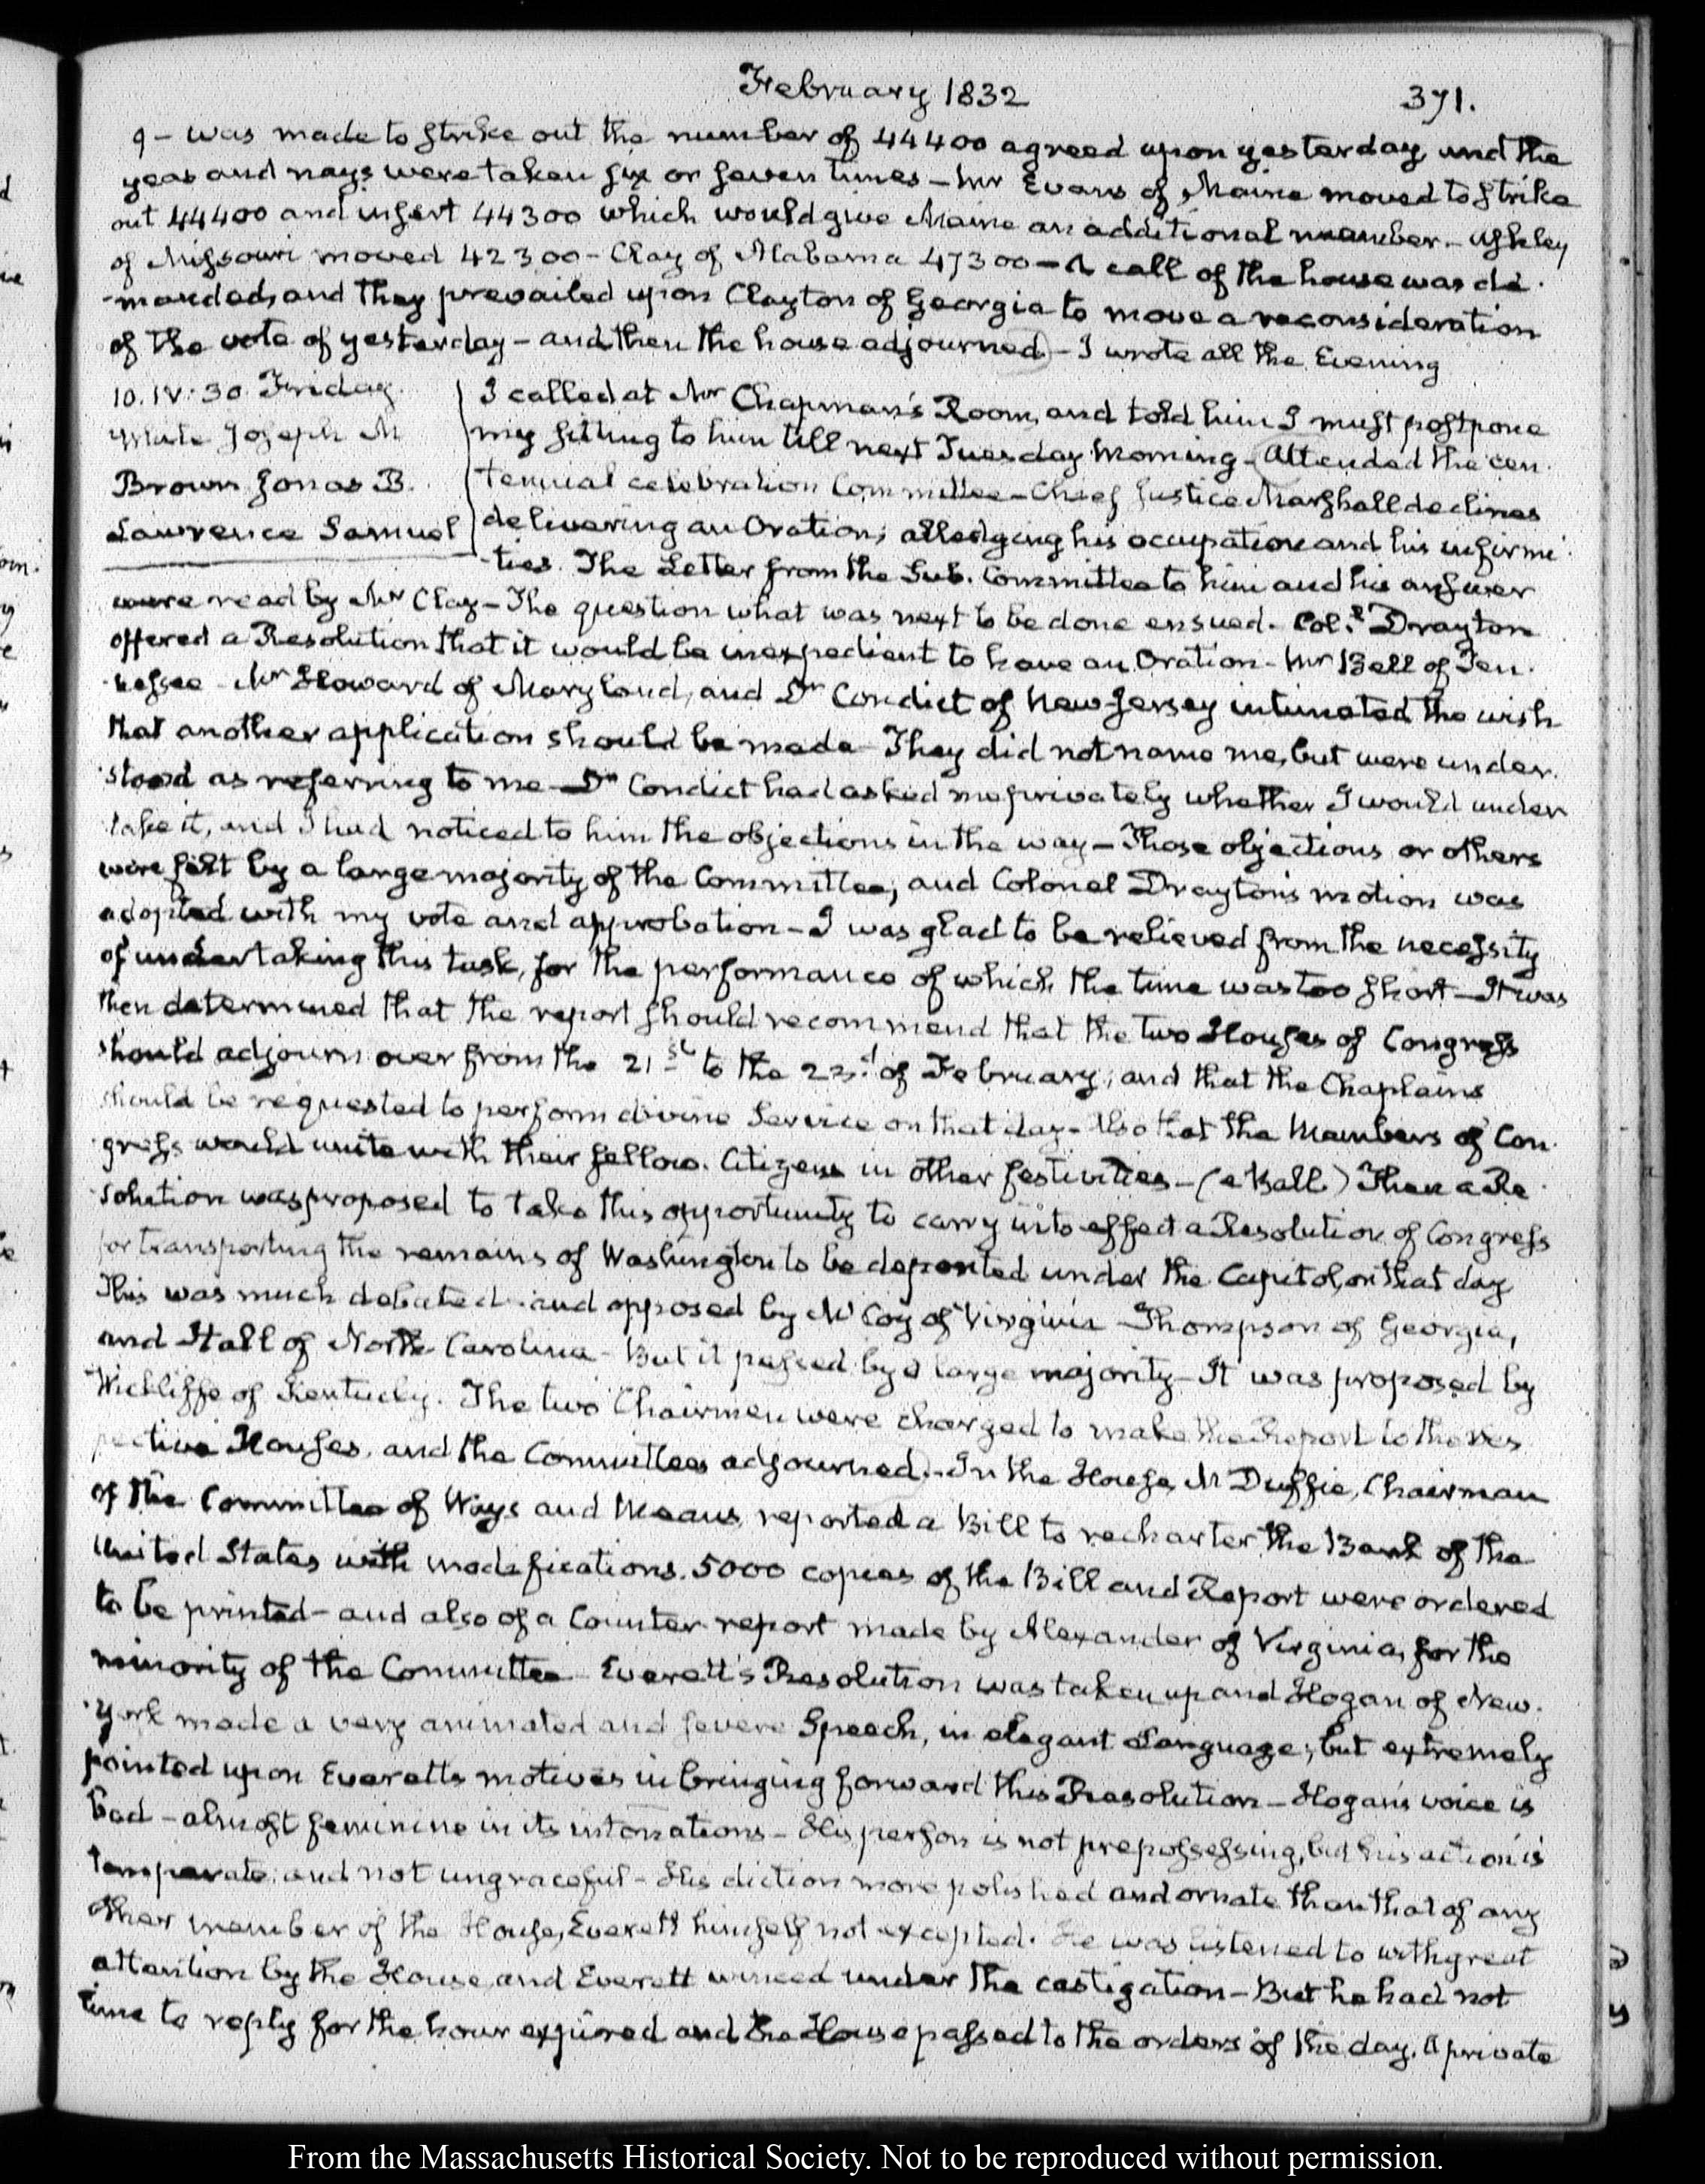 February 1832
371.
9 – was made to strike out the number of 44400 agreed upon yesterday, and the
yeas and nays were taken six or seven times – Mr Evans of Maine moved to strike
out 44400 and insert 44300 which would give Maine an additional member – Ashley
of Missouri moved 42300 – Clay of Alabama 47300 – A call of the house was de-
manded, and they prevailed upon Clayton of Georgia to move a reconsideration
of the vote of yesterday – and then the house adjourned) – I wrote all the Evening
10. IV:30. Friday.
White Joseph M
Brown Jonas B.
Lawrence Samuel
I called at Mr Chapman's Room, and told him I must postpone
my sitting to him till next Tuesday Morning – (Attended the cen-
tennial celebration Committee – Chief Justice Marshall declines
delivering an Oration; alledging his occupation and his infirmi-
ties. The Letter from the Sub. Committee to him and his answer
were read by Mr Clay – The question what was next to be done ensued. Col.l Drayton
offered a Resolution that it would be inexpedient to have an Oration – Mr Bell of Ten-
nessee – Mr Howard of Maryland, and Dr Condict of New Jersey intimated the wish
that another application should be made – They did not name me, but were under-
stood as referring to me – Dr Condict had asked me privately whether I would under
take it, and I had noticed to him the objections in the way – Those objections or others
were felt by a large majority of the Committee, and Colonel Drayton's motion was
adopted with my vote and approbation – I was glad to be relieved from the necessity
of undertaking this task, for the performance of which the time was too short – It was
then determined that the report should recommend that the two Houses of Congress
should adjourn over from the 21st to the 23d of February; and that the Chaplains
should be requested to perform divine Service on that day – Also that the Members of Con-
gress would unite with their fellow-Citizens in other festivities – (a Ball) Then a Re-
solution was proposed to take this opportunity to carry into effect a Resolution of Congress
for transporting the remains of Washington to be deposited under the Capitol, on that day
This was much debated and opposed by McCoy of Virginia – Thompson of Georgia,
and Hall of North-Carolina – But it passed by a large majority – It was proposed by
Wickliffe of Kentucky. The two Chairmen were charged to make the Report to the res
pective Houses, and the Committee adjourned) – In the House, McDuffie, Chairman
of the Committee of Ways and Means, reported a Bill to recharter the Bank of the
United States with modifications. 5000 copies of the Bill and Report were ordered
to be printed – and also of a Counter-report made by Alexander of Virginia, for the
minority of the Committee – Everett's Resolution was taken up and Hogan of New-
York made a very animated and severe Speech, in elegant Language; but extremely
pointed upon Everetts motives in bringing forward this Resolution – Hogan's voice is
bad – almost feminine in its intonations – His person is not prepossessing, but his action is
temperate; and not ungraceful – His diction more polished and ornate than that of any
other member of the House, Everett himself not excepted. He was listened to with great
attention by the House and Everett winced under the castigation – But he had not
time to reply for the hour expired and the House passed to the orders of the day. A private
From the Massachusetts Historical Society. Not to be reproduced without permission.